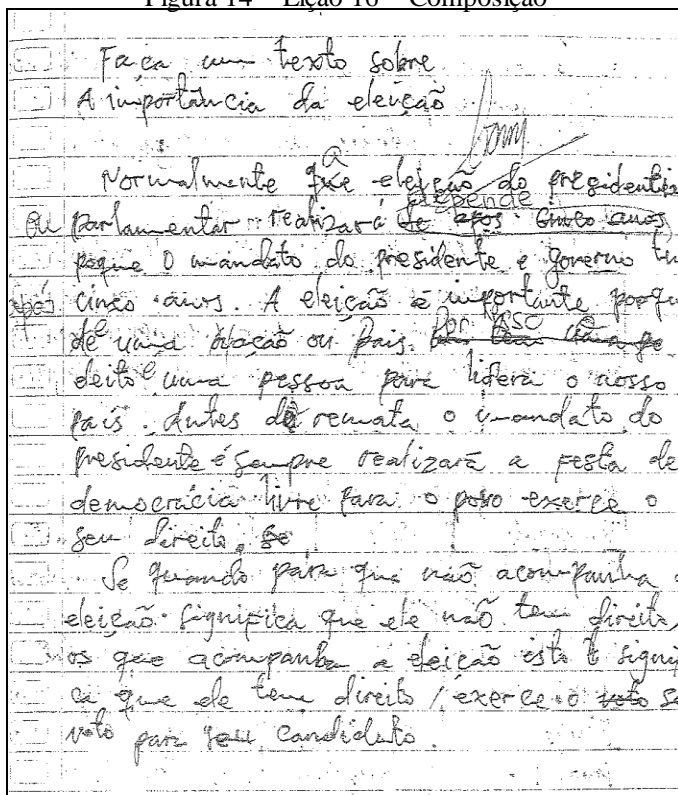 Figura 14 – Lição 16 – Composição
Faça um texto sobre
A importância da eleição
Normalmente a eleição do presidentia
ou parlamentar realizará depende após cinco anos,
poque o mandato do presidente e governo
após cinco anos. A eleição é importante porqu
de uma nação ou país. Por isso e
eleito e uma pessoa para lidera o nosso
país. Antes de remata o mandato do
presidente é sempre realizará a festa de
democrácia livre para o povo exerce o
seu direito. se
Se quando para que não acompanha a
eleição significa que ele não tem direito,
os que acompanha a eleição esta é signifi
ca que ele tem direito / exerce o voto se
voto para seu candidato.